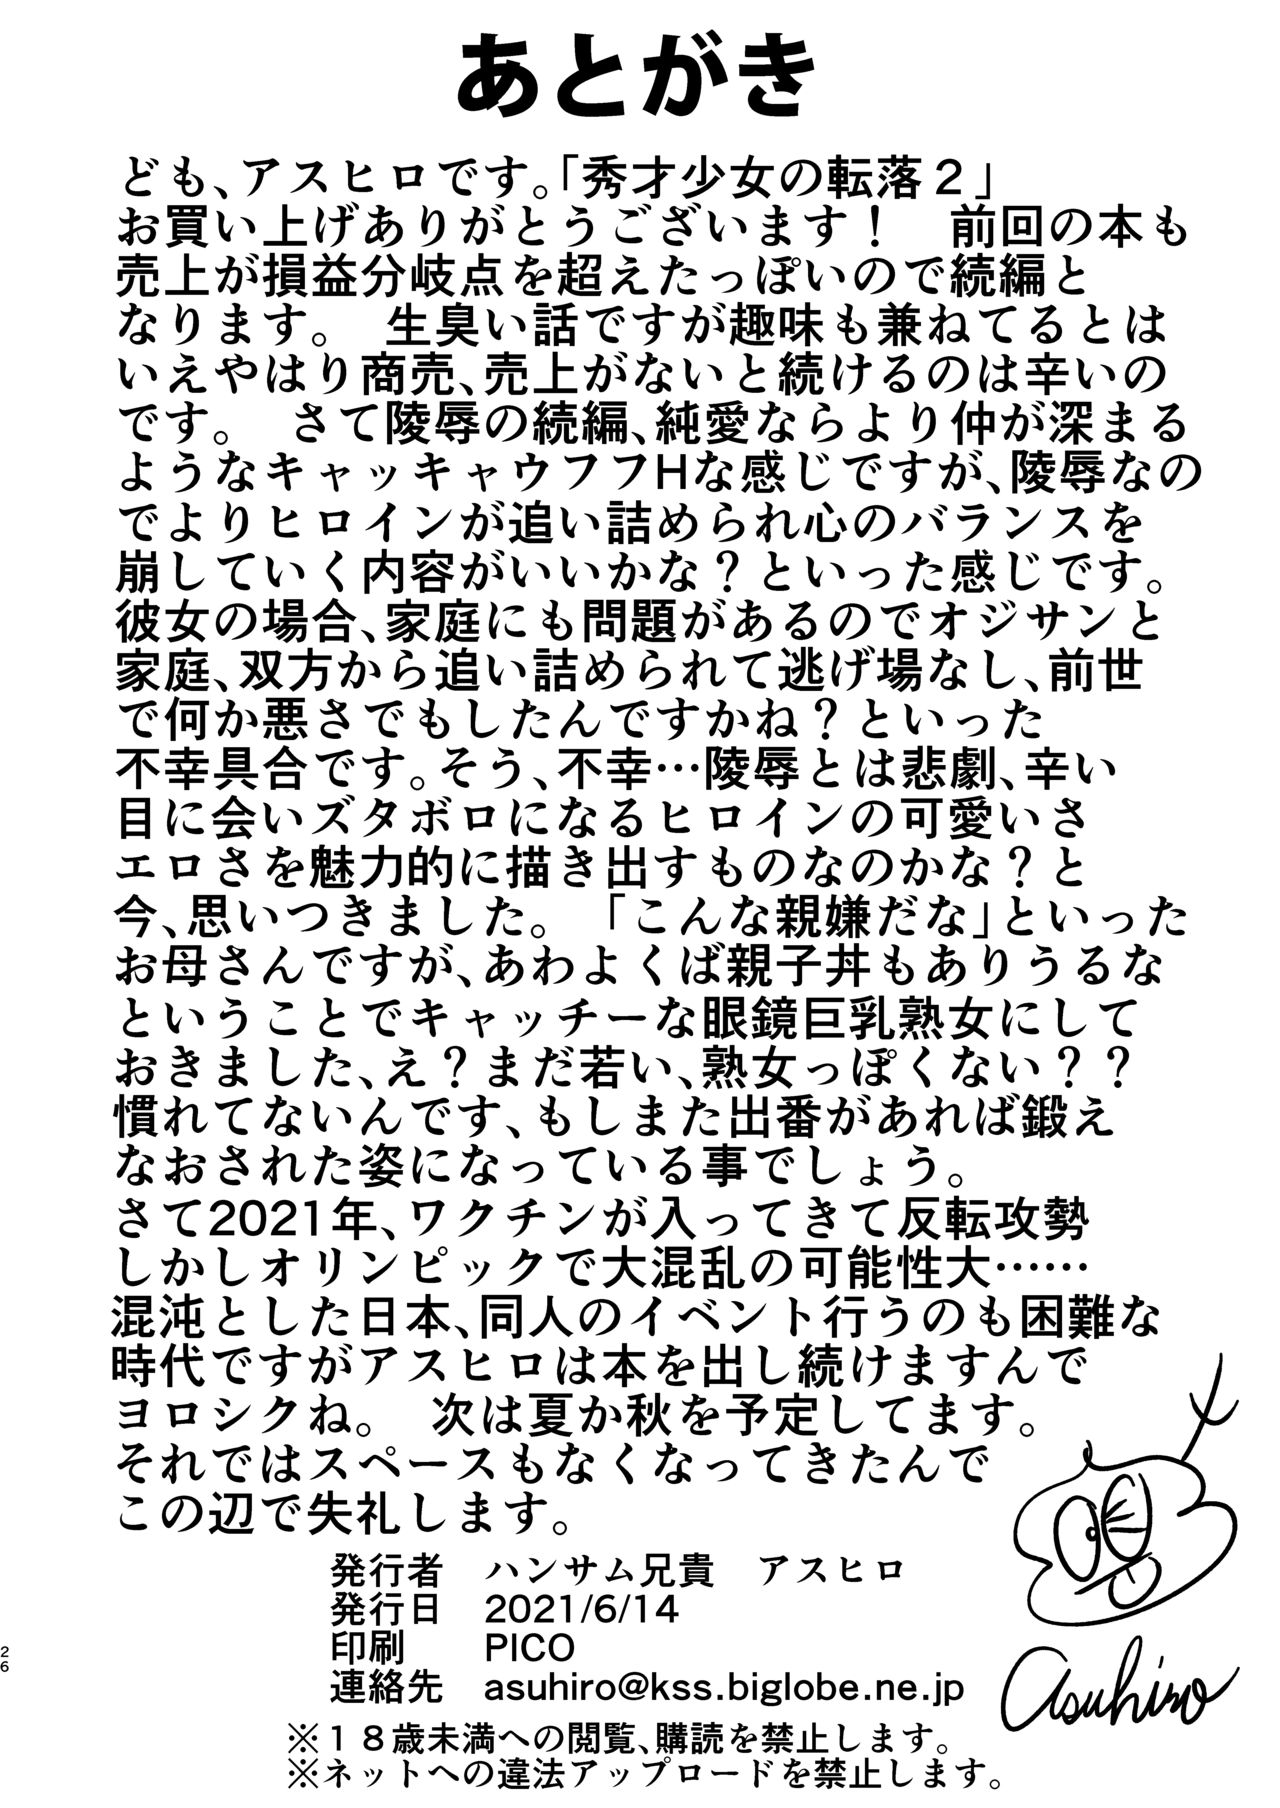 あとがき
ども、アスヒロです。「秀才少女の転落２」
お買い上げありがとうございます！　前回の本も
売上が損益分岐点を超えたっぽいので続編と
なります。　生臭い話ですが趣味も兼ねてるとは
いえやはり商売、売上がないと続けるのは辛いの
です。　さて陵辱の続編、純愛ならより仲が深まる
ようなキャッキャウフフHな感じですが、陵辱なの
でよりヒロインが追い詰められ心のバランスを
崩していく内容がいいかな？といった感じです。
彼女の場合、家庭にも問題があるのでオジサンと
家庭、双方から追い詰められて逃げ場なし、前世
で何か悪さでもしたんですかね？といった
不幸具合です。そう、不幸…陵辱とは悲劇、辛い
目に会いズタボロになるヒロインの可愛いさ
エロさを魅力的に描き出すものなのかな？と
今、思いつきました。　「こんな親嫌だな」といった
お母さんですが、あわよくば親子丼もありうるな
ということでキャッチーな眼鏡巨乳熟女にして
おきました、え？まだ若い、熟女っぽくない？？
慣れてないんです、もしまた出番があれば鍛え
なおされた姿になっている事でしょう。
さて2021年、ワクチンが入ってきて反転攻勢
しかしオリンピックで大混乱の可能性大……
混沌とした日本、同人のイベント行うのも困難な
時代ですがアスヒロは本を出し続けますんで
ヨロシクね。　次は夏か秋を予定してます。
それではスペースもなくなってきたんで
この辺で失礼します。
発行者　ハンサム兄貴　アスヒロ
発行日　2021/6/14
印刷　PICO
連絡先　asuhiro@kss.biglobe.ne.jp
Asuhiro
※１８歳未満への閲覧、購読を禁止します。
※ネットへの違法アップロードを禁止します。
26